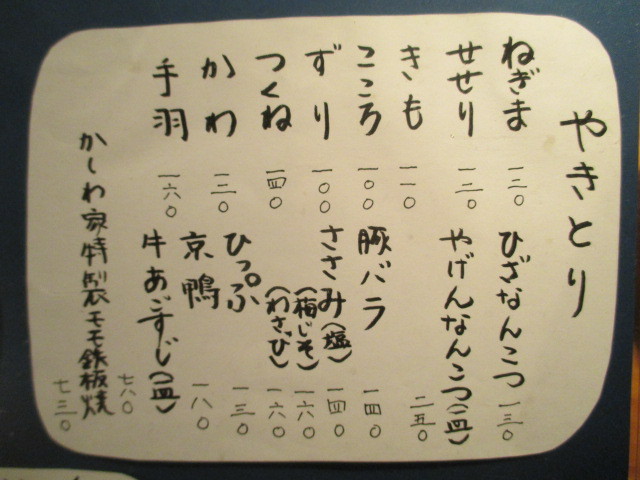 やきとり
ねぎま 一二〇
せせり 一二〇
きも 一一〇
こころ 一〇〇
ずり 一〇〇
つくね 一四〇
かわ 一二〇
手羽 一六〇
ひざなんこつ 一三〇
やげんなんこつ(一皿) 二五〇
豚バラ 一四〇
ささみ(塩) 一四〇
(梅じそ) 一六〇
(わさび) 一六〇
ひっぷ 一三〇
京鴨 一八〇
牛あごすじ(一皿) 七八〇
かしわ家特製モモ鉄板焼 七三〇